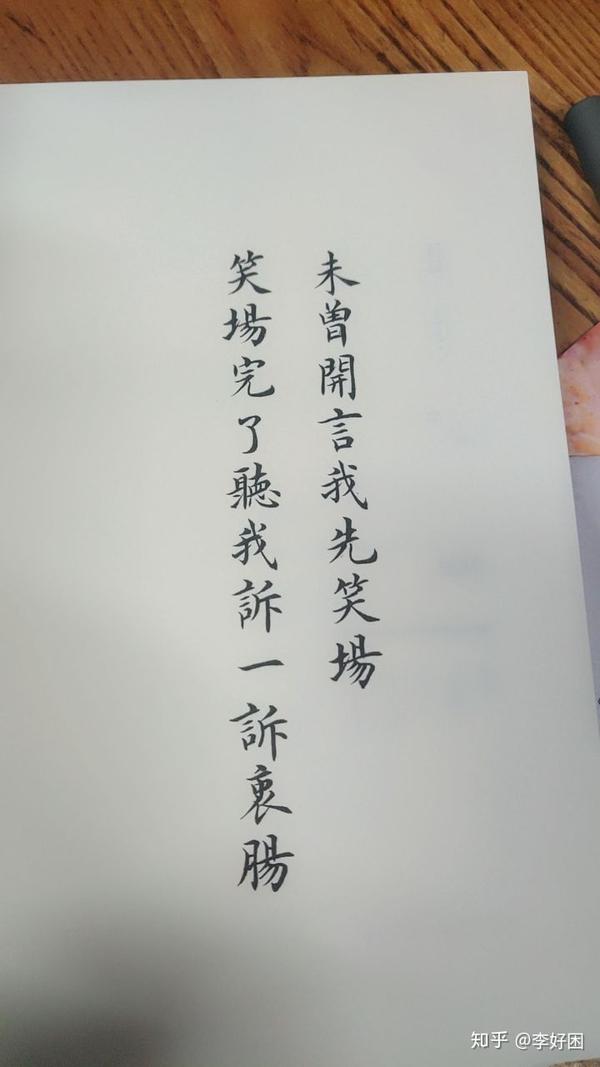 未曾開言我先笑場
笑場完了聽我訴一訴衷腸
知乎 @李好困